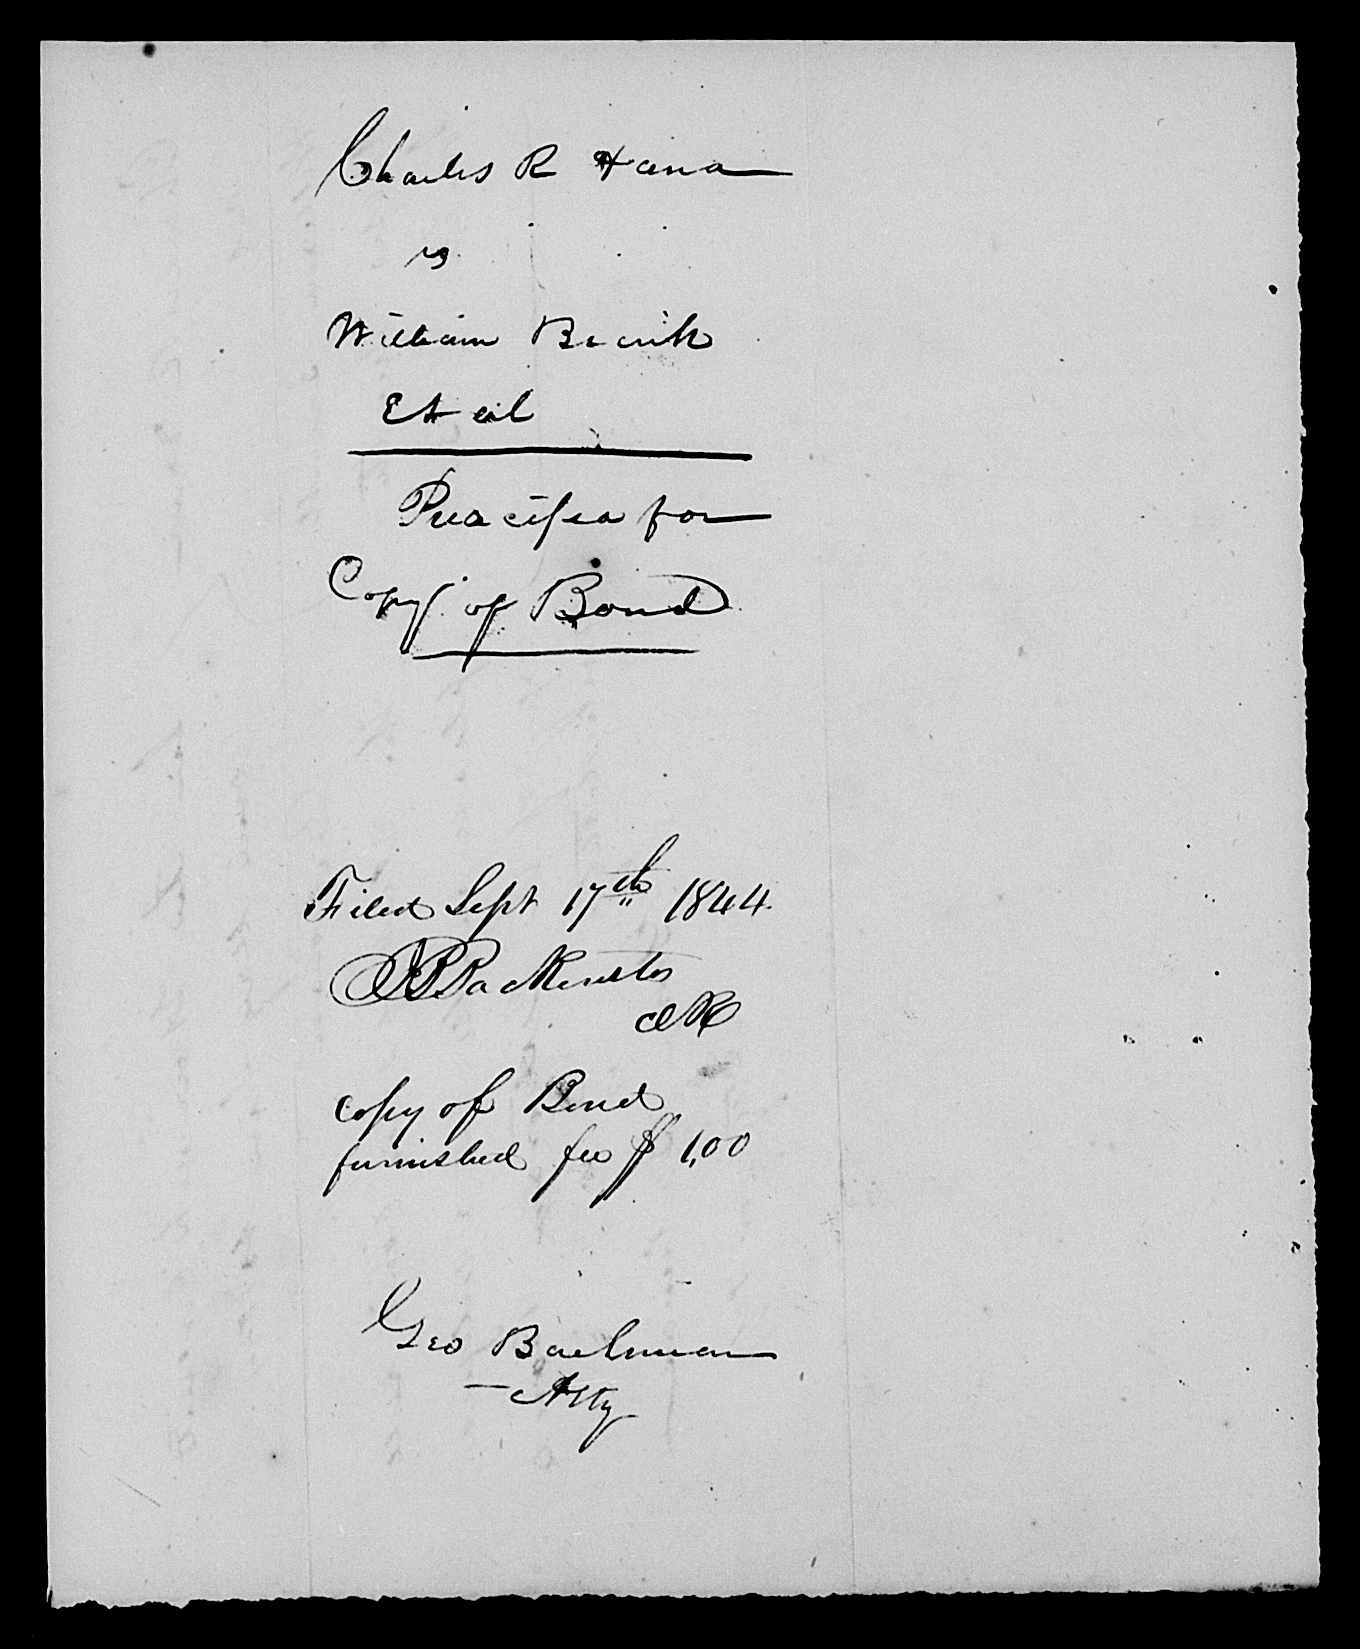 Charles R Hana
vs
William Brink
Et al
Preacipea for
Copy of Bond
Filed Sept 17th 1844.
JB Backenstos
clk
copy of Bond
furnished fee $ 1,00
Geo Bachman
Atty